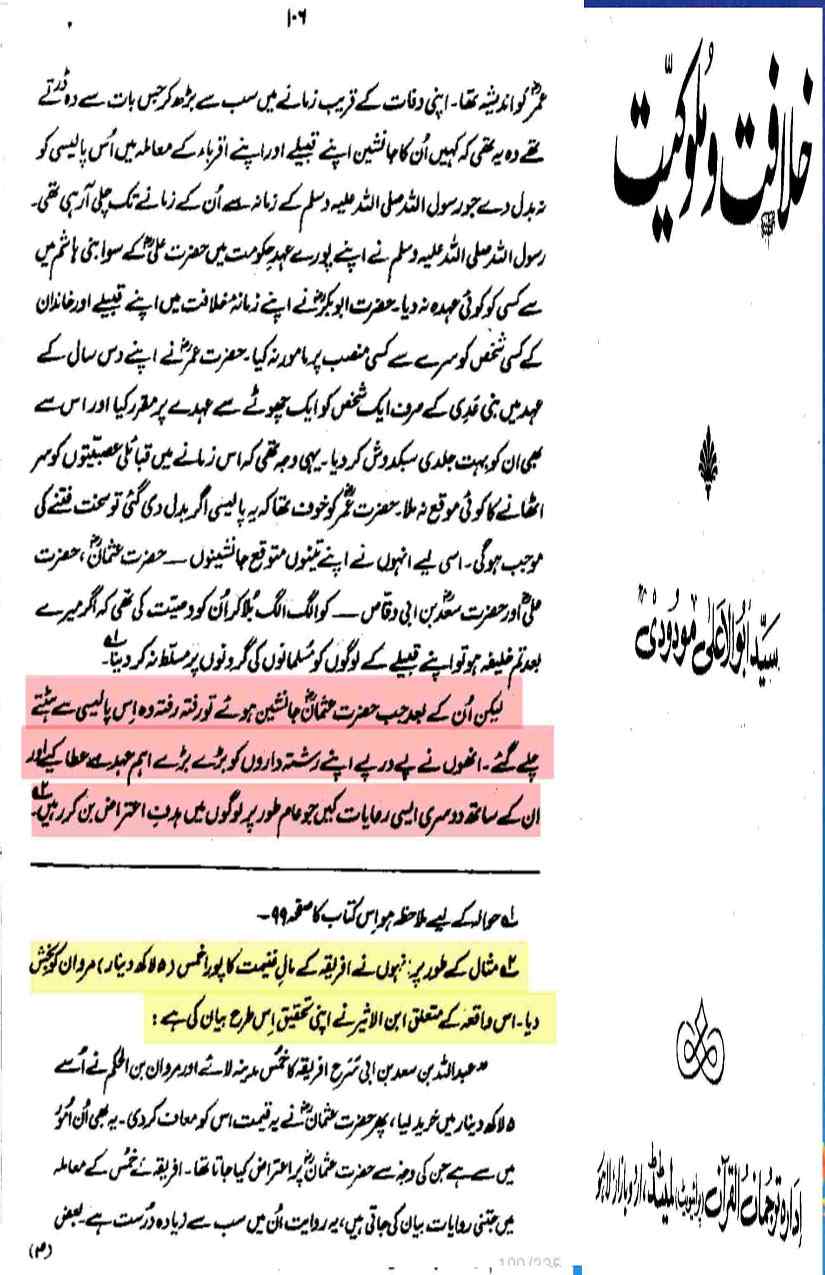 ۱۰۶
عمرؓ کو اندیشہ تھا۔ اپنی وفات کے قریب زمانے میں سب سے بڑھ کر جس بات سے وہ ڈرتے
تھے وہ یہ تھی کہ کہیں اُن کا جانشین اپنے قبیلے اور اپنے اقرباء کے معاملہ میں اُس پالیسی کو
نہ بدل دے جو رسول اللہ صلی اللہ علیہ وسلم کے زمانہ سے اُن کے زمانے تک چلی آ رہی تھی۔
رسول اللہ صلی اللہ علیہ وسلم نے اپنے پورے عہدِ حکومت میں حضرت علیؓ کے سوا بنی ہاشم میں
سے کسی کو کوئی عہدہ نہ دیا۔ حضرت ابوبکرؓ نے اپنے زمانۂ خلافت میں اپنے قبیلے اور خاندان
کے کسی شخص کو سرے سے کسی منصب پر مامور نہ کیا۔ حضرت عمرؓ نے اپنے دس سال کے
عہد میں بنی عَدِی کے صرف ایک شخص کو ایک چھوٹے سے عہدے پر مقرر کیا اور اس سے
بھی ان کو بہت جلدی سبکدوش کر دیا۔ یہی وجہ تھی کہ اس زمانے میں قبائلی عصبیّتوں کو سر
اٹھانے کا کوئی موقع نہ ملا۔ حضرت عمرؓ کو خوف تھا کہ یہ پالیسی اگر بدل دی گئی تو سخت فتنے کی
موجب ہوگی۔ اسی لیے انہوں نے اپنے تینوں متوقع جانشینوں — حضرت عثمانؓ، حضرت
علیؓ اور حضرت سعدؓ بن ابی وقاص — کو الگ الگ بُلا کر اُن کو وصیّت کی تھی کہ اگر میرے
بعد تم خلیفہ ہو تو اپنے قبیلے کے لوگوں کو مُسلمانوں کی گردنوں پر مسلّط نہ کر دینا۔۱؎
لیکن اُن کے بعد جب حضرت عثمانؓ جانشین ہوئے تو رفتہ رفتہ وہ اِس پالیسی سے ہٹتے
چلے گئے۔ انھوں نے پے در پے اپنے رشتہ داروں کو بڑے بڑے اہم عہدے عطا کیے اور
ان کے ساتھ دوسری ایسی رعایات کیں جو عام طور پر لوگوں میں ہدفِ اعتراض بن کر رہیں۔۲؎
۱؎ حوالہ کے لیے ملاحظہ ہو اِس کتاب کا صفحہ ۹۹۔
۲؎ مثال کے طور پر انہوں نے افریقہ کے مالِ غنیمت کا پورا خمس (۵ لاکھ دینار) مروان کو بخش
دیا۔ اس واقعہ کے متعلق ابن الاثیر نے اپنی تحقیق اِس طرح بیان کی ہے:
"عبداللہ بن سعد بن ابی سَرح افریقہ کا خُمس مدینہ لائے اور مروان بن الحکم نے اُسے
۵ لاکھ دینار میں خرید لیا، پھر حضرت عثمانؓ نے یہ قیمت اس کو معاف کر دی۔ یہ بھی اُن اُمور
میں سے ہے جن کی وجہ سے حضرت عثمانؓ پر اعتراض کیا جاتا تھا۔ افریقہ کے خُمس کے معاملہ
میں جتنی روایات بیان کی جاتی ہیں، یہ روایت اُن میں سب سے زیادہ درست ہے۔ بعض
(م)
خلافت و ملوکیّت
سیّد ابو الاعلیٰ مودودیؒ
ادارہ ترجمان القرآن (پرائیویٹ) لمیٹڈ، اردو بازار، لاہور